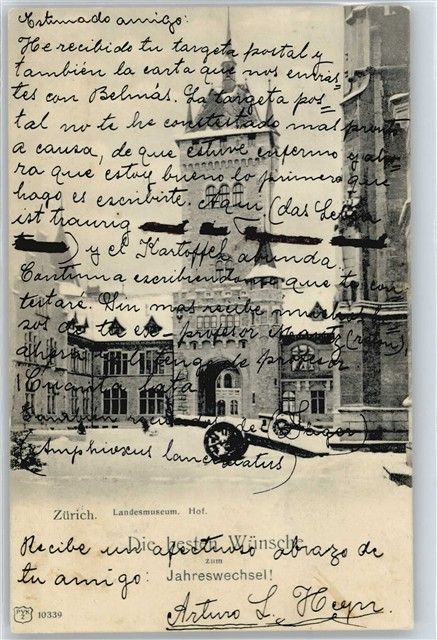 Estimado amigo:
He recibido tu targeta postal y
también la carta que nos envias-
tes con Belmás. La targeta pos-
tal no te he contestado mas pronto
a causa, de que estive enfermo y aho-
ra que estoy bueno lo primero que
hago es escribirte. Aqui (das Leben
ist traurig
) y el Kartoffel, abunda.
Continua escribiendo que te con-
testaré. Sin mas recibe muchos be-
sos de tu ex profesor (raton),
ahora profesor
Cuanta lata
tambien
Amphioxus lanceolatus)
Zürich. Landesmuseum. Hof.
Die besten Wünsche
zum
Jahreswechsel!
Recibe un afectuoso abrazo de
tu amigo:
Arturo L. Heyn
PVK Z 10339